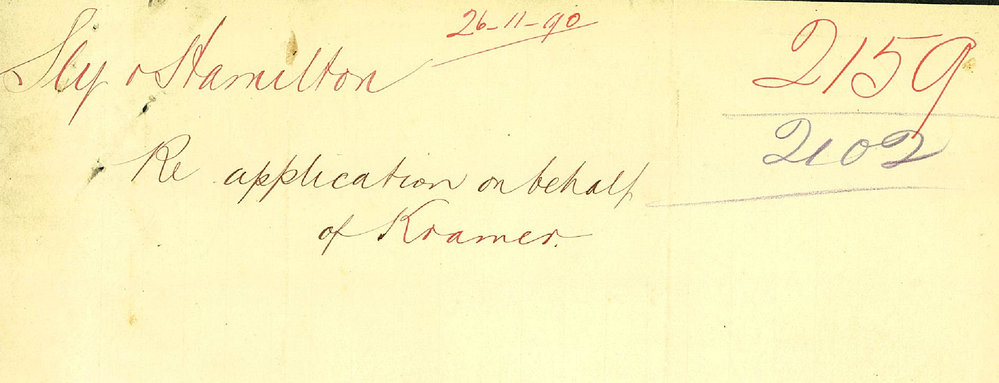 26-11-90
Sly & Hamilton
2159
2102
Re application on behalf
of Kramer.